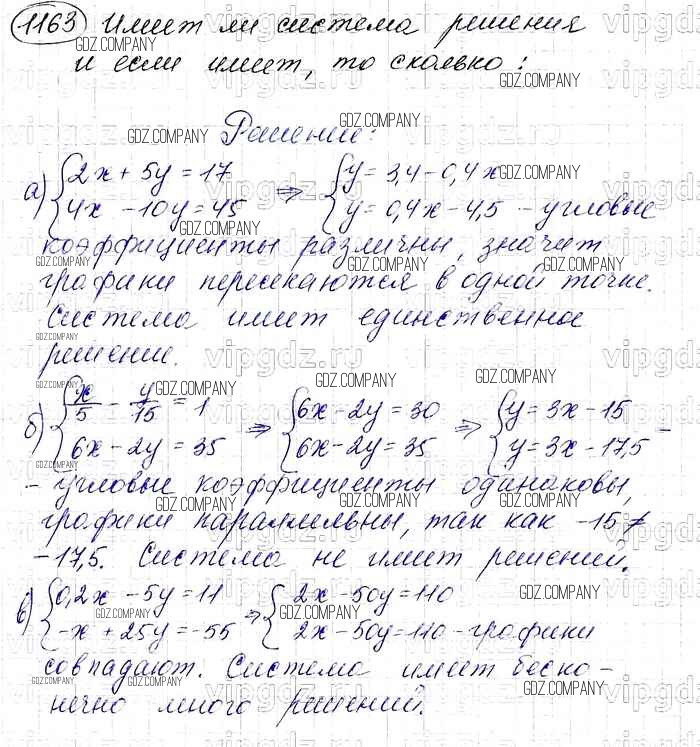 1163 Имеет ли система решения
и если имеет, то сколько:
Решение:
а) {2x + 5y = 17 => {y = 3,4 - 0,4x
{4x - 10y = 45 {y = 0,4x - 4,5 - угловые
коэффициенты различны, значит
графики пересекаются в одной точке.
Система имеет единственное
решение.
б) {x/5 - y/15 = 1 => {6x - 2y = 30 => {y = 3x - 15
{6x - 2y = 35 {6x - 2y = 35 {y = 3x - 17,5 -
- угловые коэффициенты одинаковы,
графики параллельны, так как -15 ≠
-17,5. Система не имеет решений.
в) {0,2x - 5y = 11 => {2x - 50y = 110
{-x + 25y = -55 {2x - 50y = 110 - графики
совпадают. Система имеет беско-
нечно много решений.